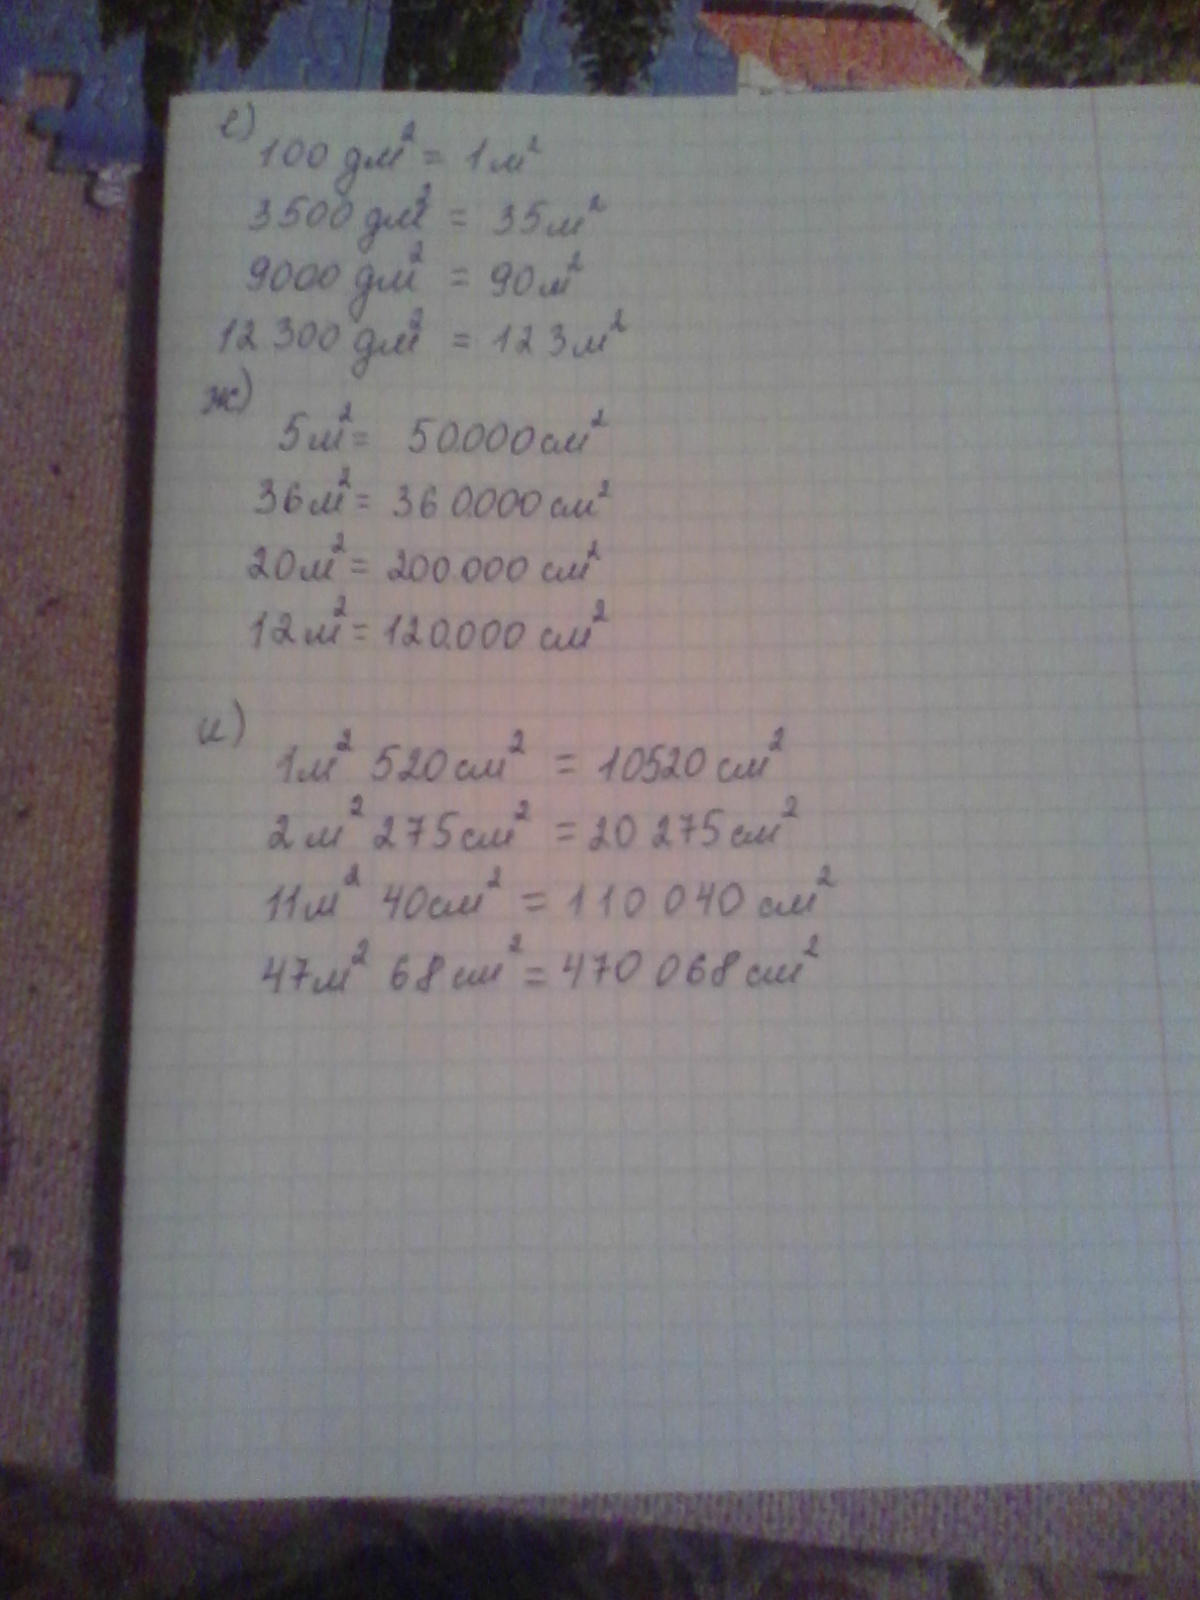 е)
100 дм² = 1м²
3500 дм² = 35м²
9000 дм² = 90м²
12 300 дм² = 123м²
ж)
5м² = 50.000 см²
36м² = 360.000 см²
20м² = 200.000 см²
12м² = 120.000 см²
и)
1м² 520 см² = 10520 см²
2 м² 275 см² = 20 275 см²
11м² 40см² = 110 040 см²
47м² 68 см² = 470 068 см²